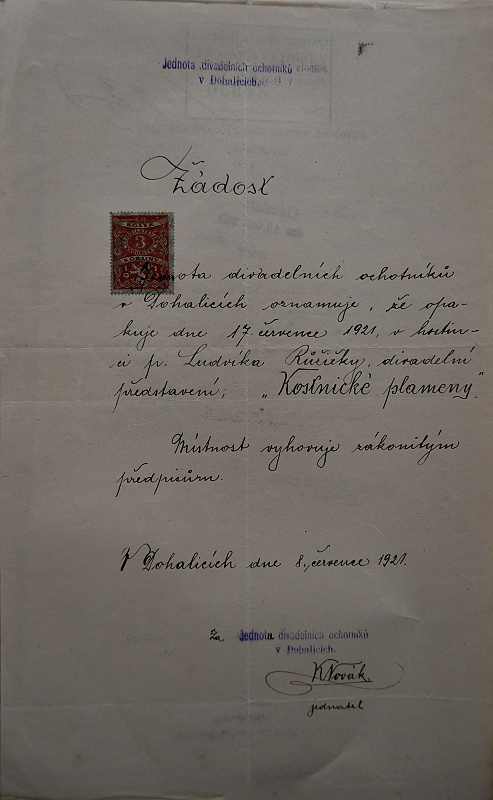 Jednota divadelních ochotníků
v Dohalicích.
Žádost
KOLEK
3
KORUNY
Jednota divadelních ochotníků
v Dohalicích oznamuje, že opa-
kuje dne 17. července 1921, v hostin-
ci p. Ludvíka Růžičky, divadelní
představení; „Kostnické plameny"
Místnost vyhovuje zákonitým
předpisům.
V Dohalicích dne 8. července 1921.
Za Jednotu divadelních ochotníků
v Dohalicích.
KNovák
jednatel